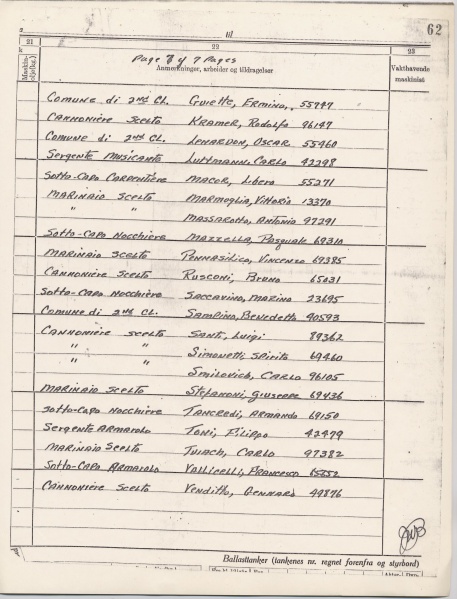 62
til
21 22 23
Page 7 of 7 Pages
Maskin-
Anmerkninger, arbeider og tildragelser
Vakthavende
maskinist
Comune di 2nd Cl. Guiette, Ermino, 55747
Cannonière Scelto Kramer, Rodolfo 96147
Comune di 2nd Cl. Lenardon, Oscar 55460
Sergente Musicante Luttmann, Carlo 42298
Sotto-Capo Carpentiere Macor, Libero 55271
Marinaio Scelto Marmoglia, Vittorio 13370
" " Massarotto, Antonio 97291
Sotto-Capo Nocchière Mazzella, Pasquale 69310
Marinaio Scelto Pennasilico, Vincenzo 69385
Cannonière Scelto Rusconi, Bruno 65031
Sotto-Capo Nocchière Saccavino, Marino 23695
Comune di 2nd Cl. Sampino, Benedetto 90593
Cannonière Scelto Sant, Luigi 89362
" " Simonetti Spirito 69460
Smilovich, Carlo 96105
Marinaio Scelto Stefanoni, Giuseppe 69436
Sotto-Capo Nocchière Tancredi, Armando 69150
Sergente Armaiolo Toni, Filippo 42479
Marinaio Scelto Tuiach, Carlo 97382
Sotto-Capo Armaiolo Vallicelli, Francesco 65652
Cannonière Scelto Venditto, Gennaro 49876
Ballasttanker (tankenes nr. regnet forenfra og styrbord)